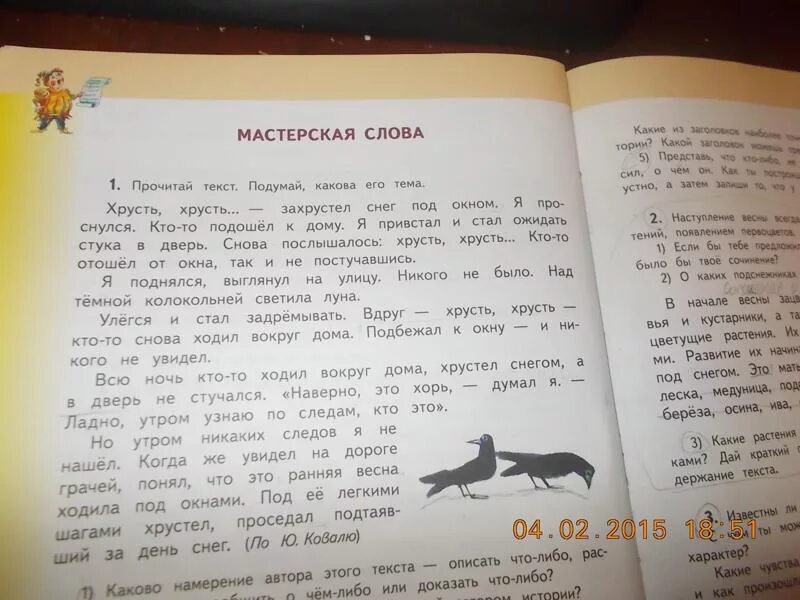 МАСТЕРСКАЯ СЛОВА
1. Прочитай текст. Подумай, какова его тема.
Хрусть, хрусть... — захрустел снег под окном. Я про-
снулся. Кто-то подошёл к дому. Я привстал и стал ожидать
стука в дверь. Снова послышалось: хрусть, хрусть... Кто-то
отошёл от окна, так и не постучавшись.
Я поднялся, выглянул на улицу. Никого не было. Над
тёмной колокольней светила луна.
Улёгся и стал задрёмывать. Вдруг — хрусть, хрусть —
кто-то снова ходил вокруг дома. Подбежал к окну — и ни-
кого не увидел.
Всю ночь кто-то ходил вокруг дома, хрустел снегом, а
в дверь не стучался. «Наверно, это хорь, — думал я. —
Ладно, утром узнаю по следам, кто это».
Но утром никаких следов я не
нашёл. Когда же увидел на дороге
грачей, понял, что это ранняя весна
ходила под окнами. Под её легкими
шагами хрустел, проседал подтаяв-
ший за день снег. (По Ю. Ковалю)
1) Каково намерение автора этого текста — описать что-либо, рас-
о чём-либо или доказать что-либо?
истории?
Какие из заголовков наиболее
тории? Какой заголовок можешь
5) Представь, что кто-либо, не
сил, о чём он. Как ты
устно, а затем запиши то, что у
2. Наступление весны всегда
тений, появлением первоцветов.
1) Если бы тебе предложил
было бы твоё сочинение?
2) О каких подснежниках
В начале весны
вья и кустарники, а та
цветущие растения. Их
ми. Развитие их начин
под снегом. Это мать
леска, медуница, под
берёза, осина, ива,
3) Какие растения
ками? Дай краткий п
держание текста.
3. Известны ли
С чем ты мож
характер?
Какие чувства
и как произош
04.02.2015 18:51